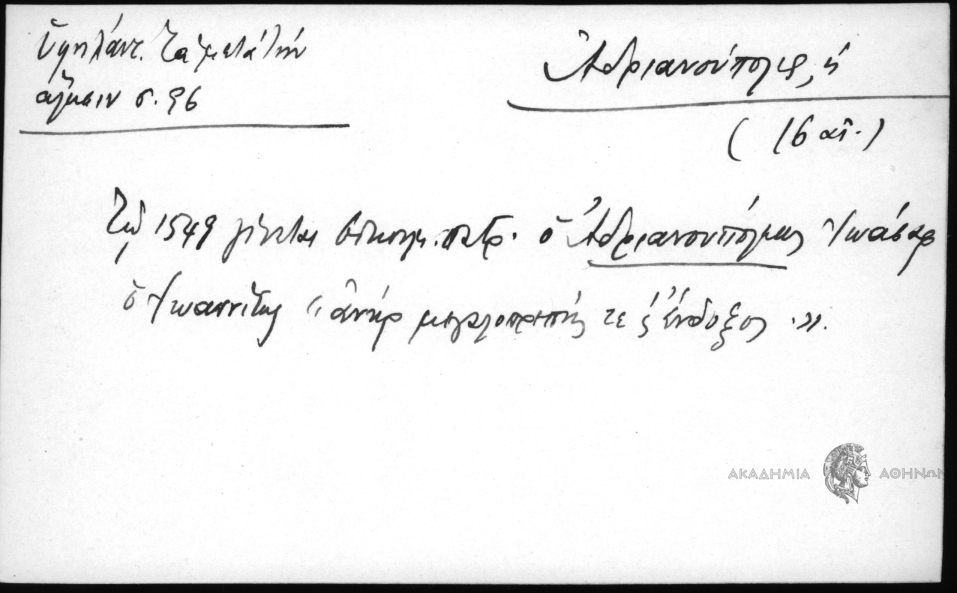 Ὑψηλάντ. Τὰ μετὰ τὴν
ἅλωσιν σ. 96
Ἀδριανούπολις, ἡ
(16 αἰ.)
Τῷ 1549 γίνεται Οἰκουμ. πατρ. ὁ Ἀδριανουπόλεως Ἰωάσαφ
ὁ Ἰωαννίτης "ἀνὴρ μεγαλοπρεπής τε κ ἔνδοξος".
ΑΚΑΔΗΜΙΑ ΑΘΗΝΩΝ